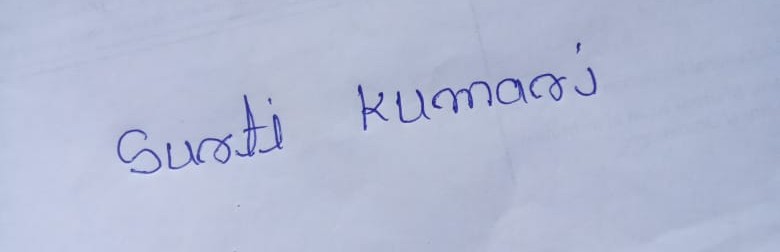 Surti Kumari